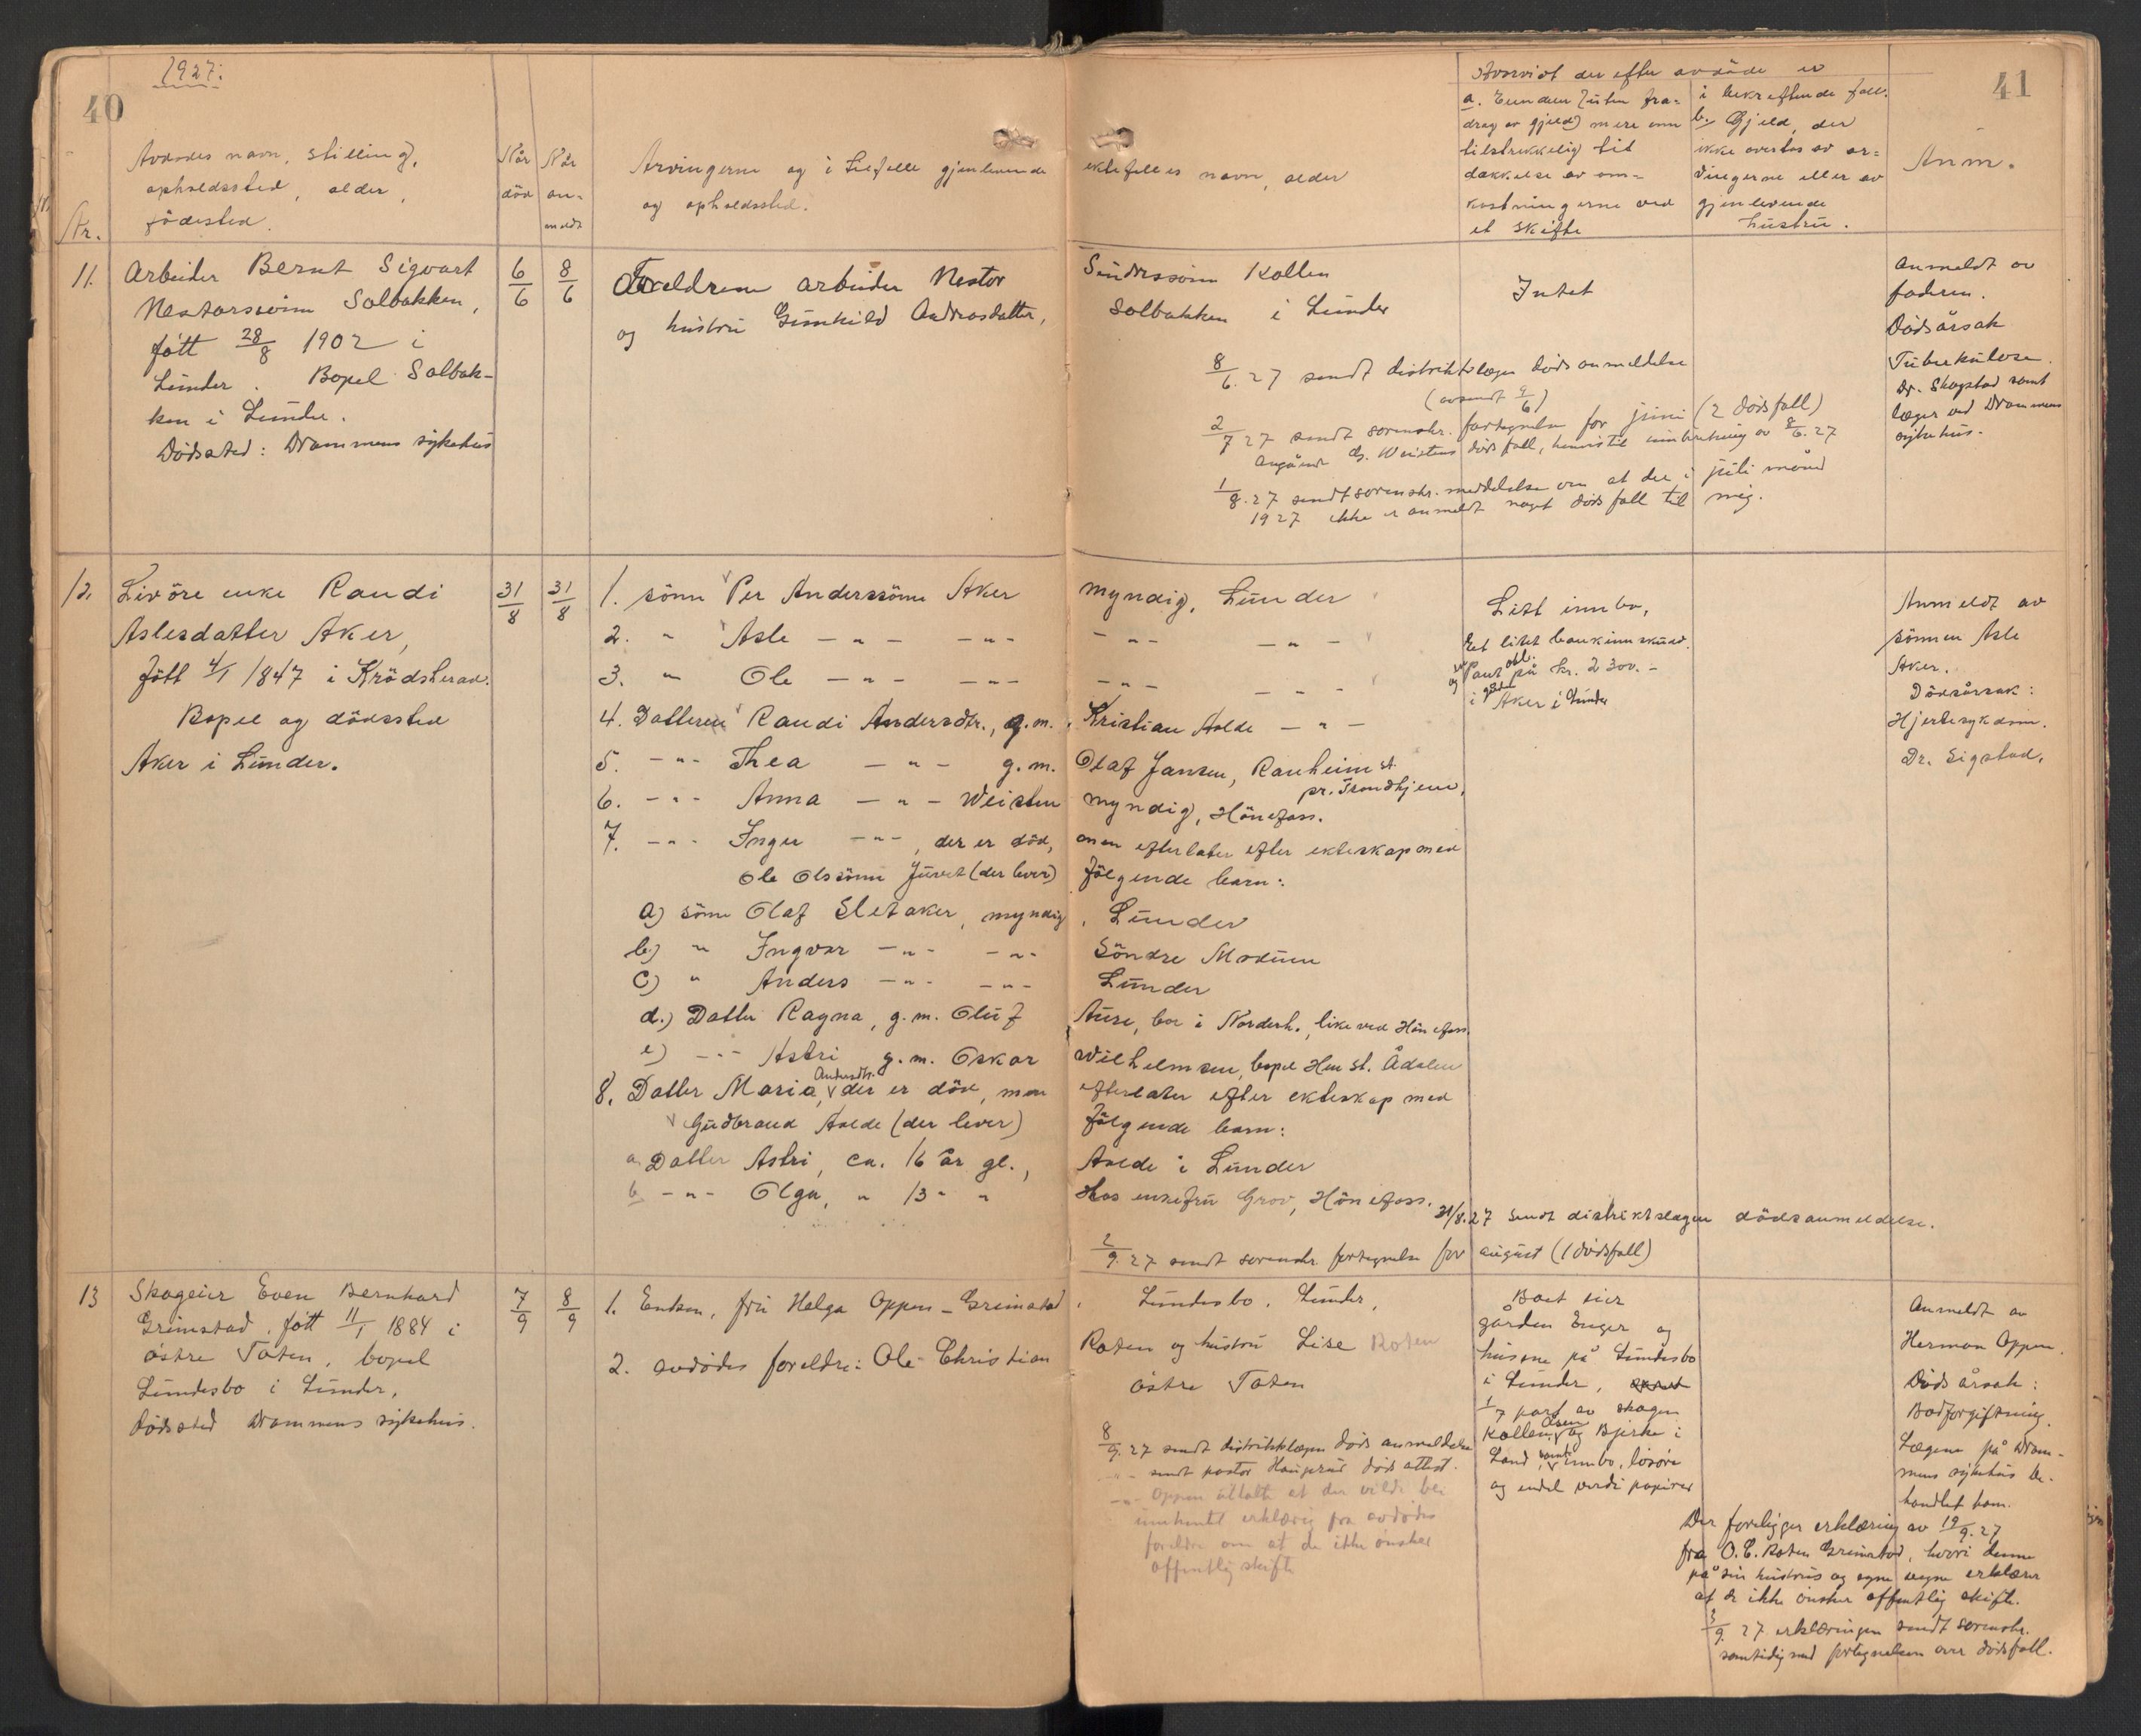 1927.
40
Nr.
Avdødes navn, stilling,
opholdssted, alder,
fødested.
Når
død
Når
an-
meldt
Arvingerne og i tilfelle gjenlevende ektefelles navn, alder
og opholdssted.
Hvorvidt der efter avdøde er
a. Eiendeler (uten fra-
drag av gjeld) mere enn
tilstrekkelig til
dækkelse av om-
kostningerne ved
et skifte
i bekreftende fall.
b. Gjeld, der
ikke overtas av ar-
vingerne eller av
gjenlevende
hustru.
41
Anm.
11.
Arbeider Bernt Sigvart
Nestorssønn Solbakken,
født 28/8 1902 i
Lunder. Bopel Solbak-
ken i Lunder.
Dødssted: Drammens sykehus
6/6
8/6
Foreldrene arbeider Nestor Sundrssønn Kollen
og hustru Gunhild Androsdatter, Solbakken i Lunder
Intet
8/6.27 sendt distriktslægen dødsanmeldelse
(avsendt 9/6)
2/7 27 sendt sorenskr. fortegnelse for juni (2 dødsfall)
Angående G. Weistens dødsfall, henvises til innberetning av 8/6.27
1/8.27 sendt sorenskr. meddelelse om at der i juli måned
1927 ikke er anmeldt noget dødsfall til mig.
Anmeldt av
faderen.
Dødsårsak
Tuberkulose.
Dr. Skagstad samt
læger ved Drammens
sykehus.
12.
Livøre enke Randi
Aslesdatter Aker,
født 4/1 1847 i Krødsherad.
Bopel og dødssted
Aker i Lunder.
31/8
31/8
1. sønn Per Anderssønn Aker myndig, Lunder
2. " Asle - " - - " - - " - - " -
3. " Ole - " - - " - - " - - " -
4. Datteren Randi Andersdtr., g.m. Kristian Avlde - " -
5. - " - Thea - " - g.m. Olaf Jansen, Ranheim st.
pr. Trondhjem.
6. - " - Anna - " - Weisten myndig, Hønefoss.
7. - " - Inger - " -, der er død, men efterlater efter ekteskap med
Ole Olssønn Juvet (der lever) følgende barn:
a) sønn Olaf Sletaker, myndig, Lunder
b) " Ingvar - " - - " - Søndre Modum
c) " Anders - " - - " - Lunder
d.) Datter Ragna, g.m. Oluf Aure, bor i Norderh., like ved Hønefoss.
e) - " - Astri g.m. Oskar Wilhelmsen, bopel Hen st. Ådalen
8. Datter Maria Andersdtr., der er død, men efterlater efter ekteskap med
Gudbrand Avlde (der lever) følgende barn:
a. Datter Astri, ca. 16 år gl., Avlde i Lunder
b. - " - Olga, " 13 " " Hos enkefru Grov, Hønefoss.
31/8.27 sendt distriktslægen dødsanmeldelse.
2/9.27 sendt sorenskr. fortegnelse for august (1 dødsfall)
Litt innbo,
Et litet bankinnskudd.
og en Pant obl. på kr. 2300.-
i gården Aker i Lunder
Anmeldt av
sønnen Asle
Aker.
Dødsårsak:
Hjertesykdom.
Dr. Sigstad.
13
Skogeier Even Bernhard
Grimstad, født 11/1 1884 i
østre Toten, bopel
Lundesbo i Lunder,
dødssted Drammens sykehus.
7/9
8/9
1. Enken, fru Helga Oppen-Grimstad, Lundesbo, Lunder,
2. avdødes foreldre: Ole Christian Roten og hustru Lise Roten
østre Toten
8/9.27 sendt distriktslægen dødsanmeldelse
- " - sendt pastor Hauprud dødsattest.
- " - Oppen uttalte at der vilde bli
innhentet erklæring fra avdødes
foreldre om at de ikke ønsker
offentlig skifte
Boet eier
gården Enger og
husene på Lundesbo
i Lunder,
1/7 part av skogen
Kollen, Åsen og Bjerke i
Land, samt innbo, løsøre
og endel verdipapirer
Anmeldt av
Herman Oppen.
Dødsårsak:
Blodforgiftning.
Lægene på Dram-
mens sykehus be-
handlet ham.
Der foreligger erklæring av 19/9.27
fra O.C. Roten Grimstad, hvori denne
på sin hustrus og egne vegne erklærer
at de ikke ønsker offentlig skifte.
3/9 27 erklæringen sendt sorenskr.
samtidig med fortegnelsen over dødsfall.